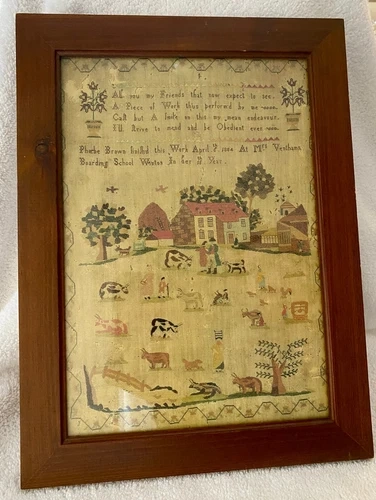 All you my Friends that now expect to see
A Piece of Work thus perform'd by me
Cast but A smile on this my mean endeavour
I'll strive to mend and be Obedient ever
Phœbe Brown finished this Work April 1800 At Mrs
Boarding School to her 11 Year